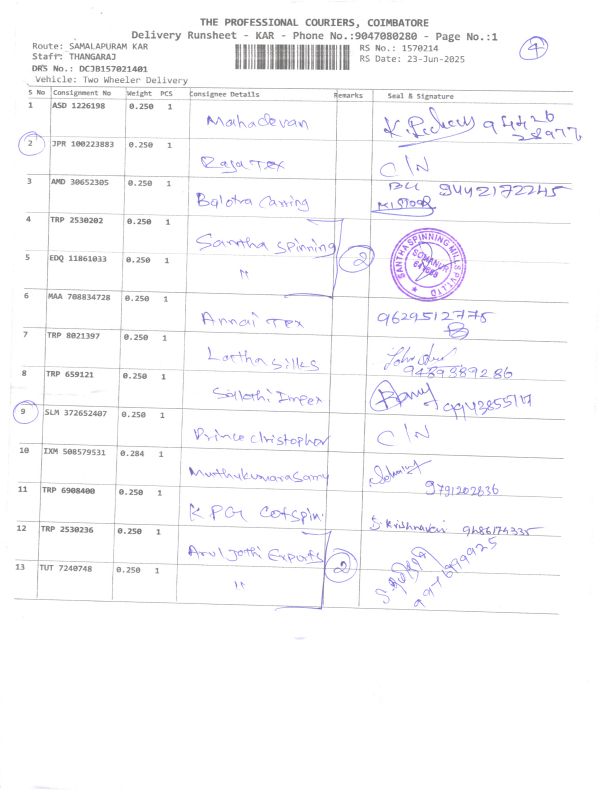 THE PROFESSIONAL COURIERS, COIMBATORE
Delivery Runsheet - KAR - Phone No.:9047080280 - Page No.:1
Route: SAMALAPURAM KAR RS No.: 1570214 4
Staff: THANGARAJ RS Date: 23-Jun-2025
DRS No.: DCJB157021401
Vehicle: Two Wheeler Delivery
S No Consignment No Weight PCS Consignee Details Remarks Seal & Signature
1 ASD 1226198 0.250 1 Mahadevan
2 JPR 100223883 0.250 1 Raja Tex C/N
3 AMD 30652305 0.250 1 Balotra Carring 9442172245
4 TRP 2530202 0.250 1 Santha Spinning 2 SANTHA SPINNING MILLS PVT.LTD SOMANUR
5 EDQ 11861033 0.250 1 "
6 MAA 708834728 0.250 1 Annai Tex 9629512775
7 TRP 8021397 0.250 1 Lartha Silks 9489389286
8 TRP 659121 0.250 1 Sakthi Impex
9 SLM 372652407 0.250 1 Prince Christopher C/N
10 IXM 508579531 0.284 1 Muthukumarasamy 9791202836
11 TRP 6908400 0.250 1 K P G Cotspin S. Krishnaveni 9486174335
12 TRP 2530236 0.250 1 Arul Jothi Exports 2
13 TUT 7240748 0.250 1 "